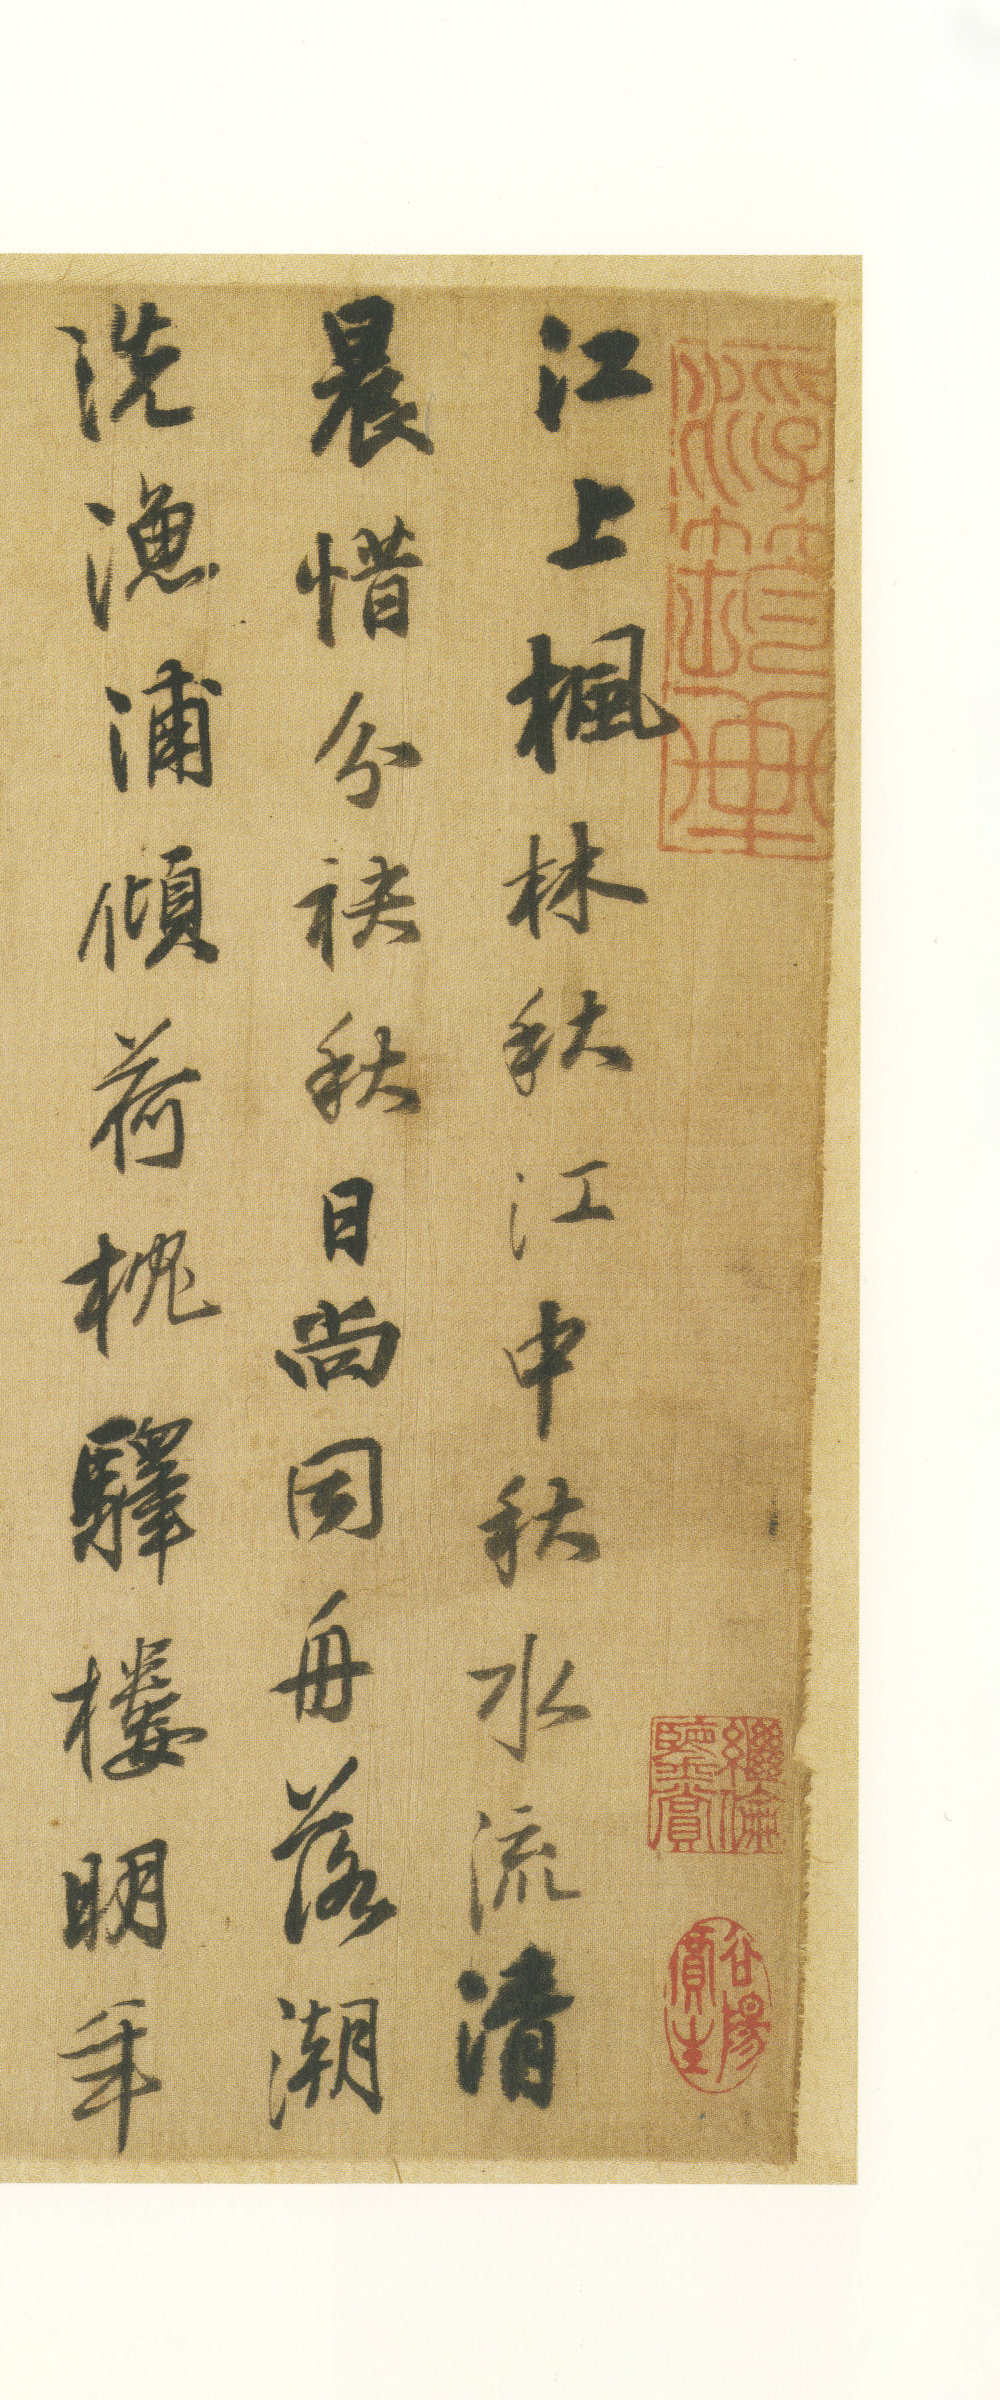 江上楓林秋江中秋水流清
晨惜分袂秋日尚同舟落潮
洗漁浦傾荷枕驛樓明年
繼儒鑒賞